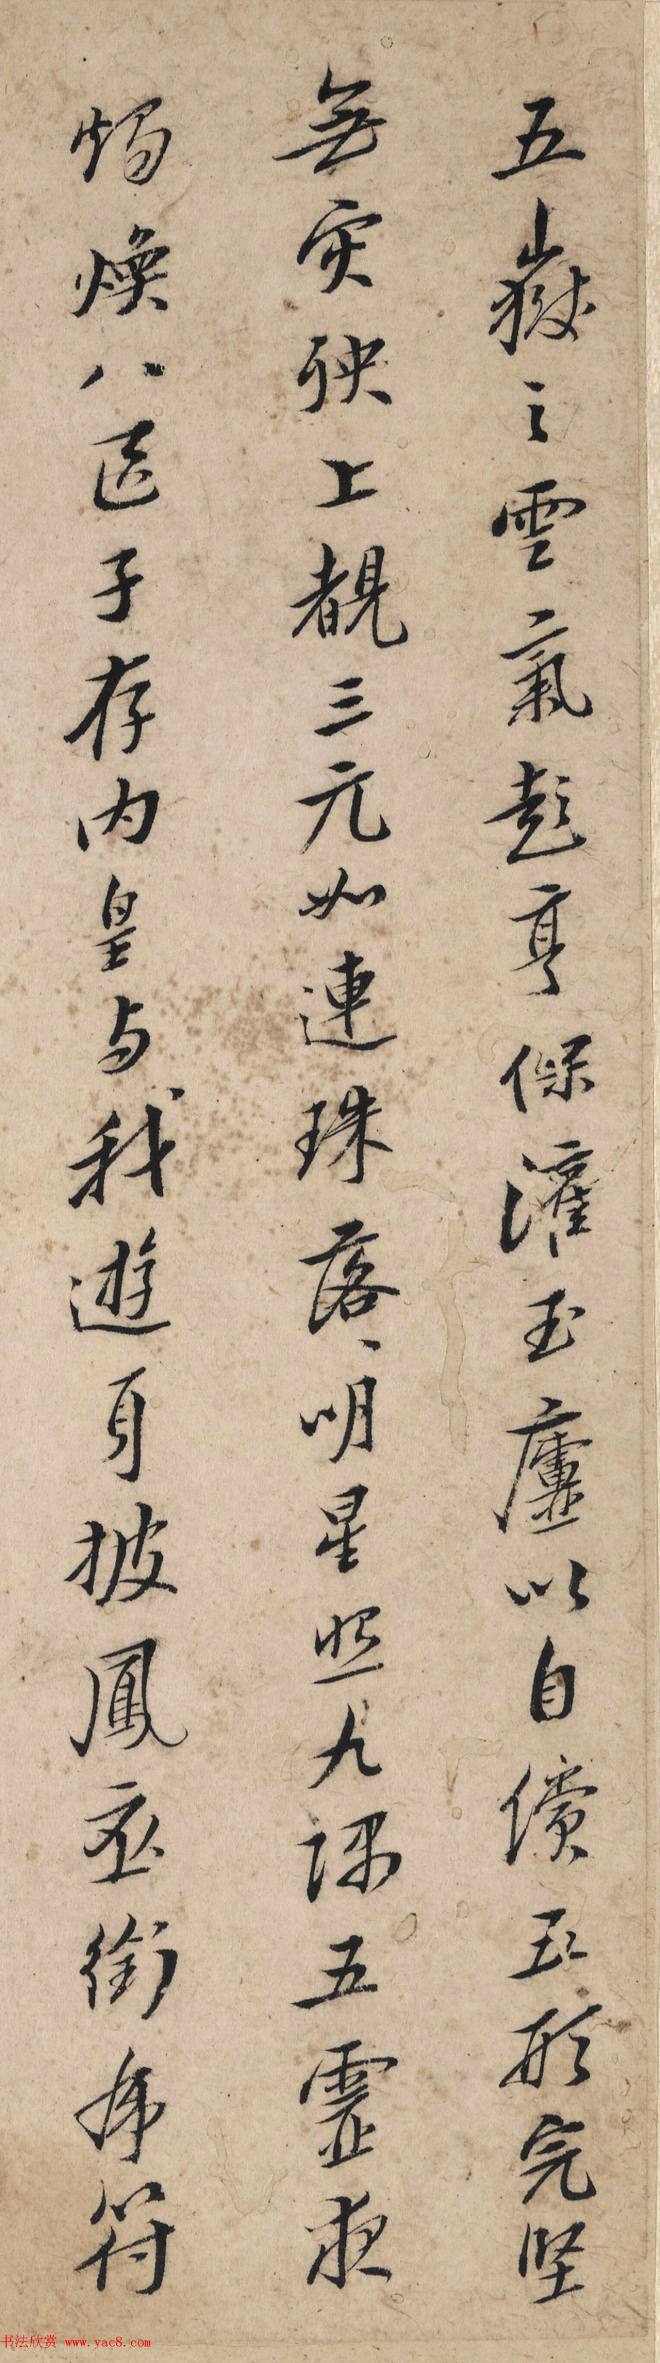 五嶽之雲氣彭亨保灌玉廬以自償五形完堅
無災殃上覩三元如連珠落〻明星照九隅五靈夜
燭煥八區子存内皇与我遊身披鳳衣銜虎符
书法欣赏 www.yac8.com